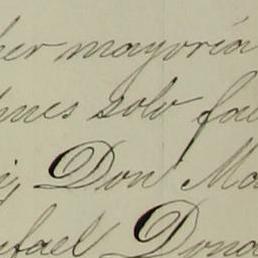 her mayoría
pues solo fal
Don Ma
afael Dona